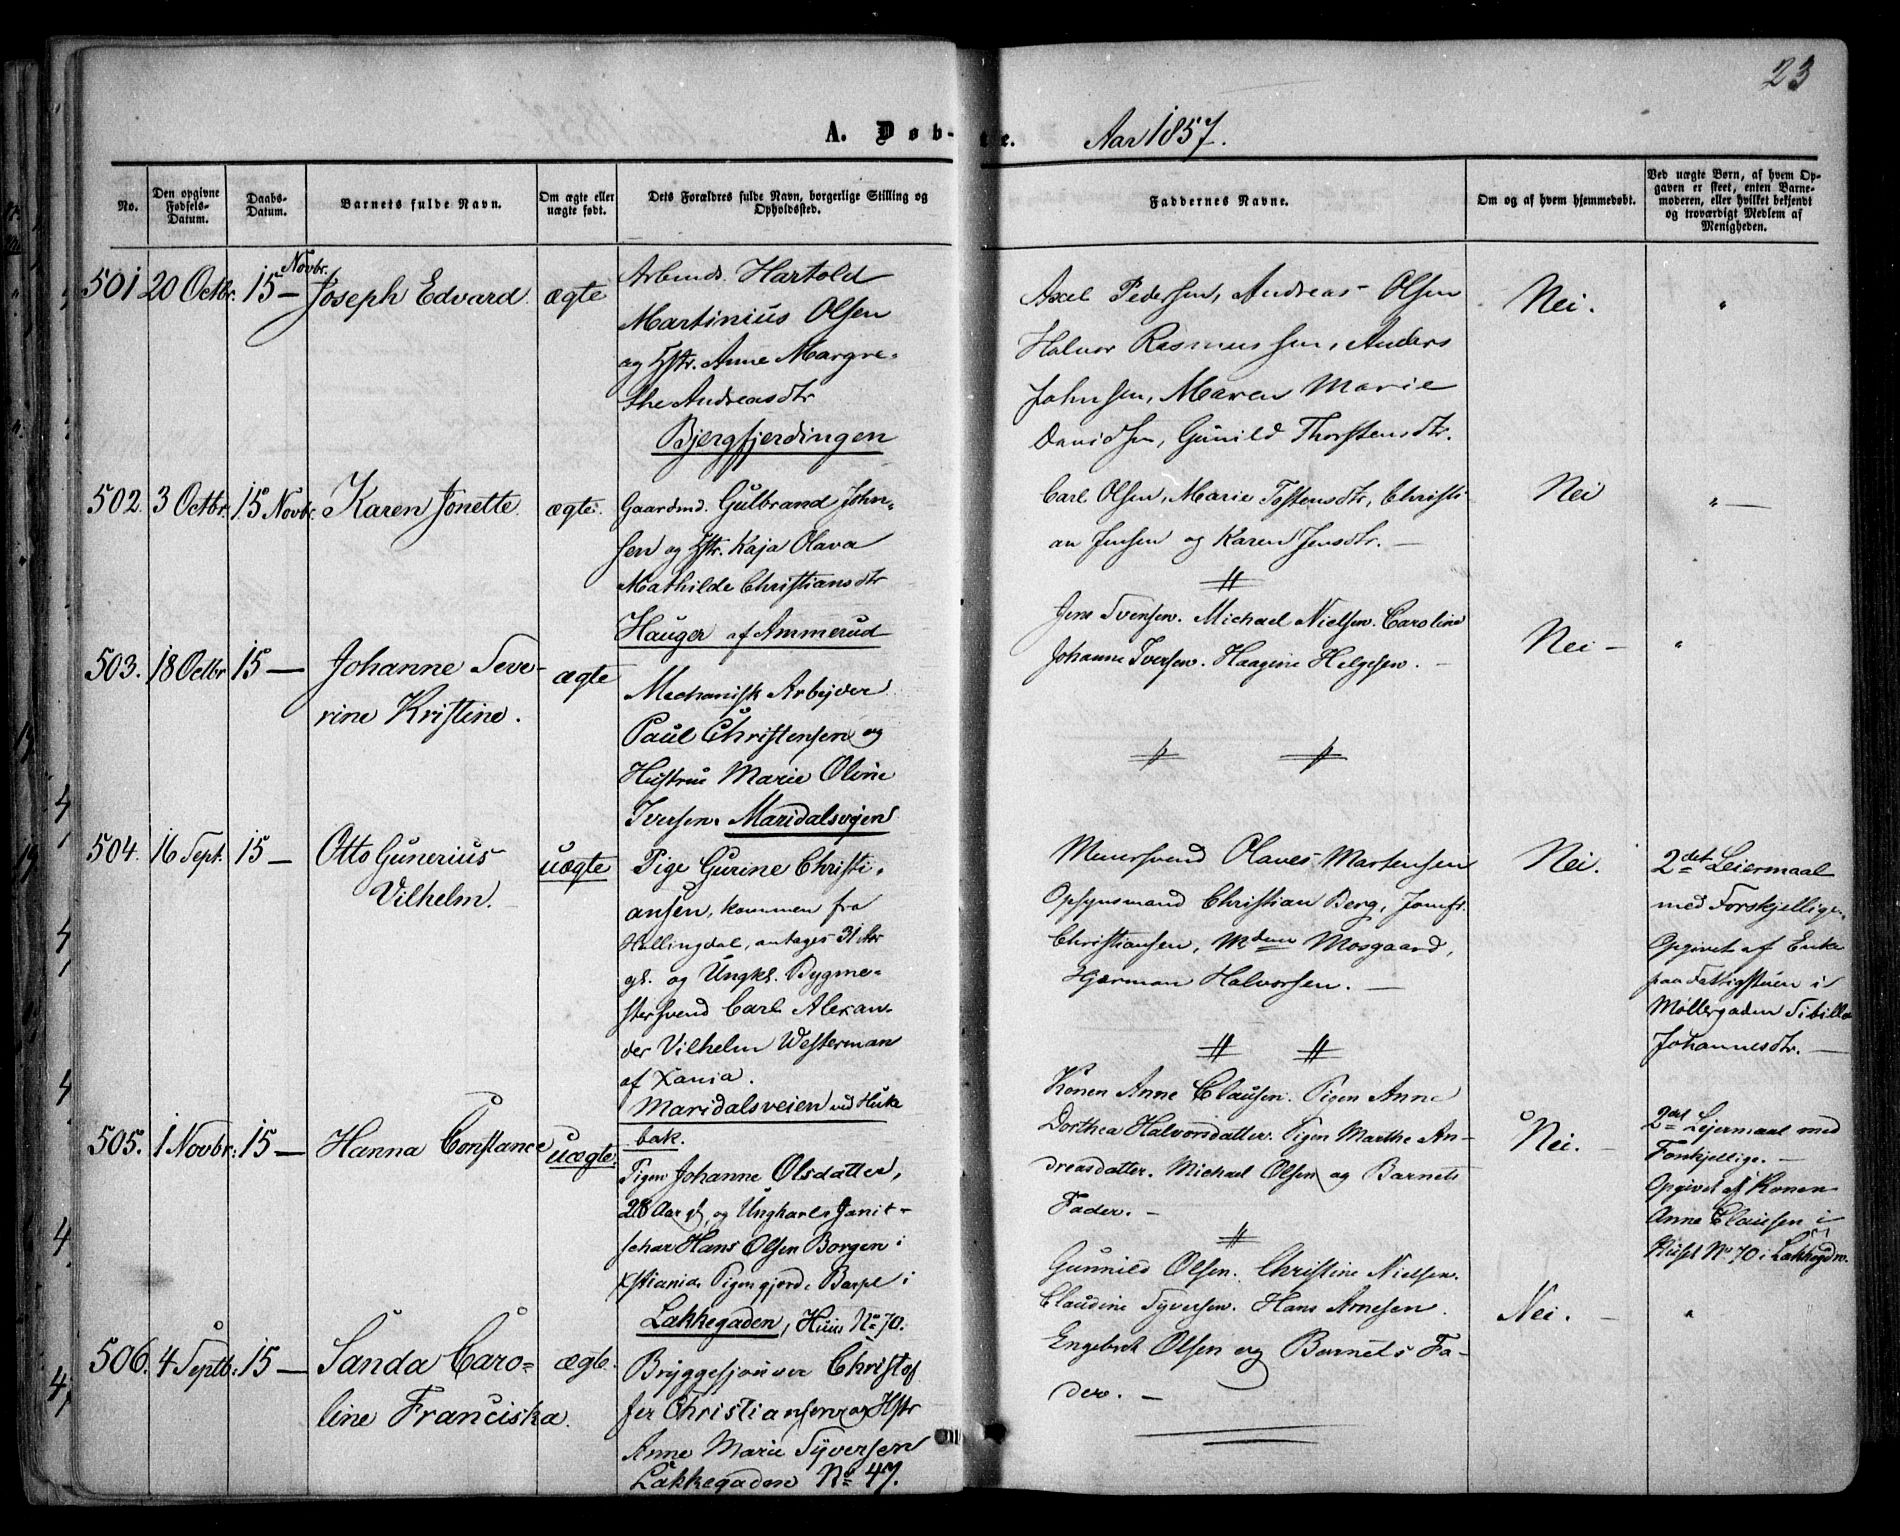 23
A. Døb-te. Aar 1857.
No.
Den opgivne Fødsels-Datum.
Daabs-Datum.
Barnets fulde Navn.
Om ægte eller uægte født.
Dets Forældres fulde Navn, borgerlige Stilling og Opholdssted.
Faddernes Navne.
Om og af hvem hjemmedøbt.
Ved uægte Børn, af hvem Opgaven er skeet, enten Barnemoderen, eller hvilket bekjendt og troværdigt Medlem af Menigheden.
501 20 Octbr. 15 Novbr. Joseph Edvard ægte
Arbmd. Hartold
Martinius Olsen
og Hstr. Anne Margre-
the Andreasdtr
Bjergfjerdingen
Axel Pedersen, Andreas Olsen
Halvor Rasmussen, Anders
Johnsen, Maren Marie
Davidsen, Gunild Thorstensdtr.
Nei. "
502. 3 Octbr. 15 Novbr. Karen Jonette ægte.
Gaardmd. Gulbrand John-
sen og Hstr. Kaja Olava
Mathilde Christiansdtr
Hauger af Ammerud
Carl Olsen, Marie Tostensdtr, Christi-
an Jensen og Karen Jensdtr. —
Nei " —
503. 18 Octbr 15 — Johanne Seve-
rine Kristine. ægte
Mechanisk Arbejder
Paul Christensen og
Hustrue Marie Oline
Iversen. Maridalsvejen
Jens Svensen. Michael Nielsen. Caroline
Johanne Iversen. Haagine Helgesen. —
Nei — "
504. 16 Sept. 15 — Otto Gunerius
Vilhelm. uægte
Pige Gurine Christi-
ansen, kommen fra
Hallingdal, antages 31 Aar
gl. og Ungkl. Bygme-
stersvend Carl Alexan-
der Vilhelm Westerman
af Xania.
Maridalsveien ved Huke
bak.
Olaves Martensen
Opsynsmand Christian Berg, Jomfr.
Christiansen, Mdme Mosgaard,
Halvorsen. —
Nei.
2det Leiermaal
med Forskjellige.
Opgivet af Enke
paa Fattigstuen i
Møllergaden Sibille
Johannesdtr. —
505. 1 Novbr. 15 — Hanna Constance uægte.
Pigen Johanne Olsdatter,
28 Aar gl, og Ungkarl Janit-
schar Hans Olsen Borgen i
Xstiania. Pigen gjord. Barsel i
Lakkegaden, Huus No 70.
Konen Anne Clausen. Pigen Anne
Dorthea Halvorsdatter. Pigen Marthe An-
dreasdatter. Michael Olsen og Barnets
Fader. —
Nei. —
2det Lejermaal med
Forskjellige. —
Opgivet af Konen
Anne Clausen i
Huset No 70 i Lakkegdn.
506. 4 Septb. 15 — Sanda Caro-
line Franciska. ægte.
Bryggesjouver Christof-
fer Christiansen og Hstr
Anne Marie Syversen
Lakkegaden No 47.
Gunnild Olsen. Christine Nielsen.
Claudine Syversen. Hans Arnesen.
Engebret Olsen og Barnets Fa-
der. —
Nei. — "